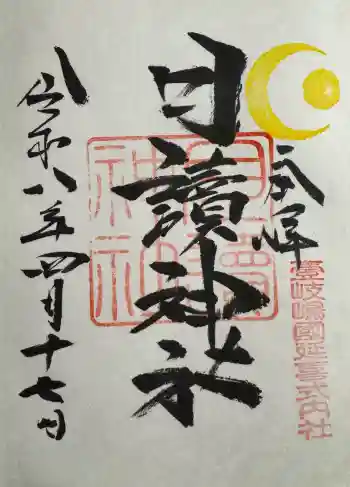 奉拝
壹岐嶋國延喜式内社
月讀神社
月讀
神社
令和八年四月十七日